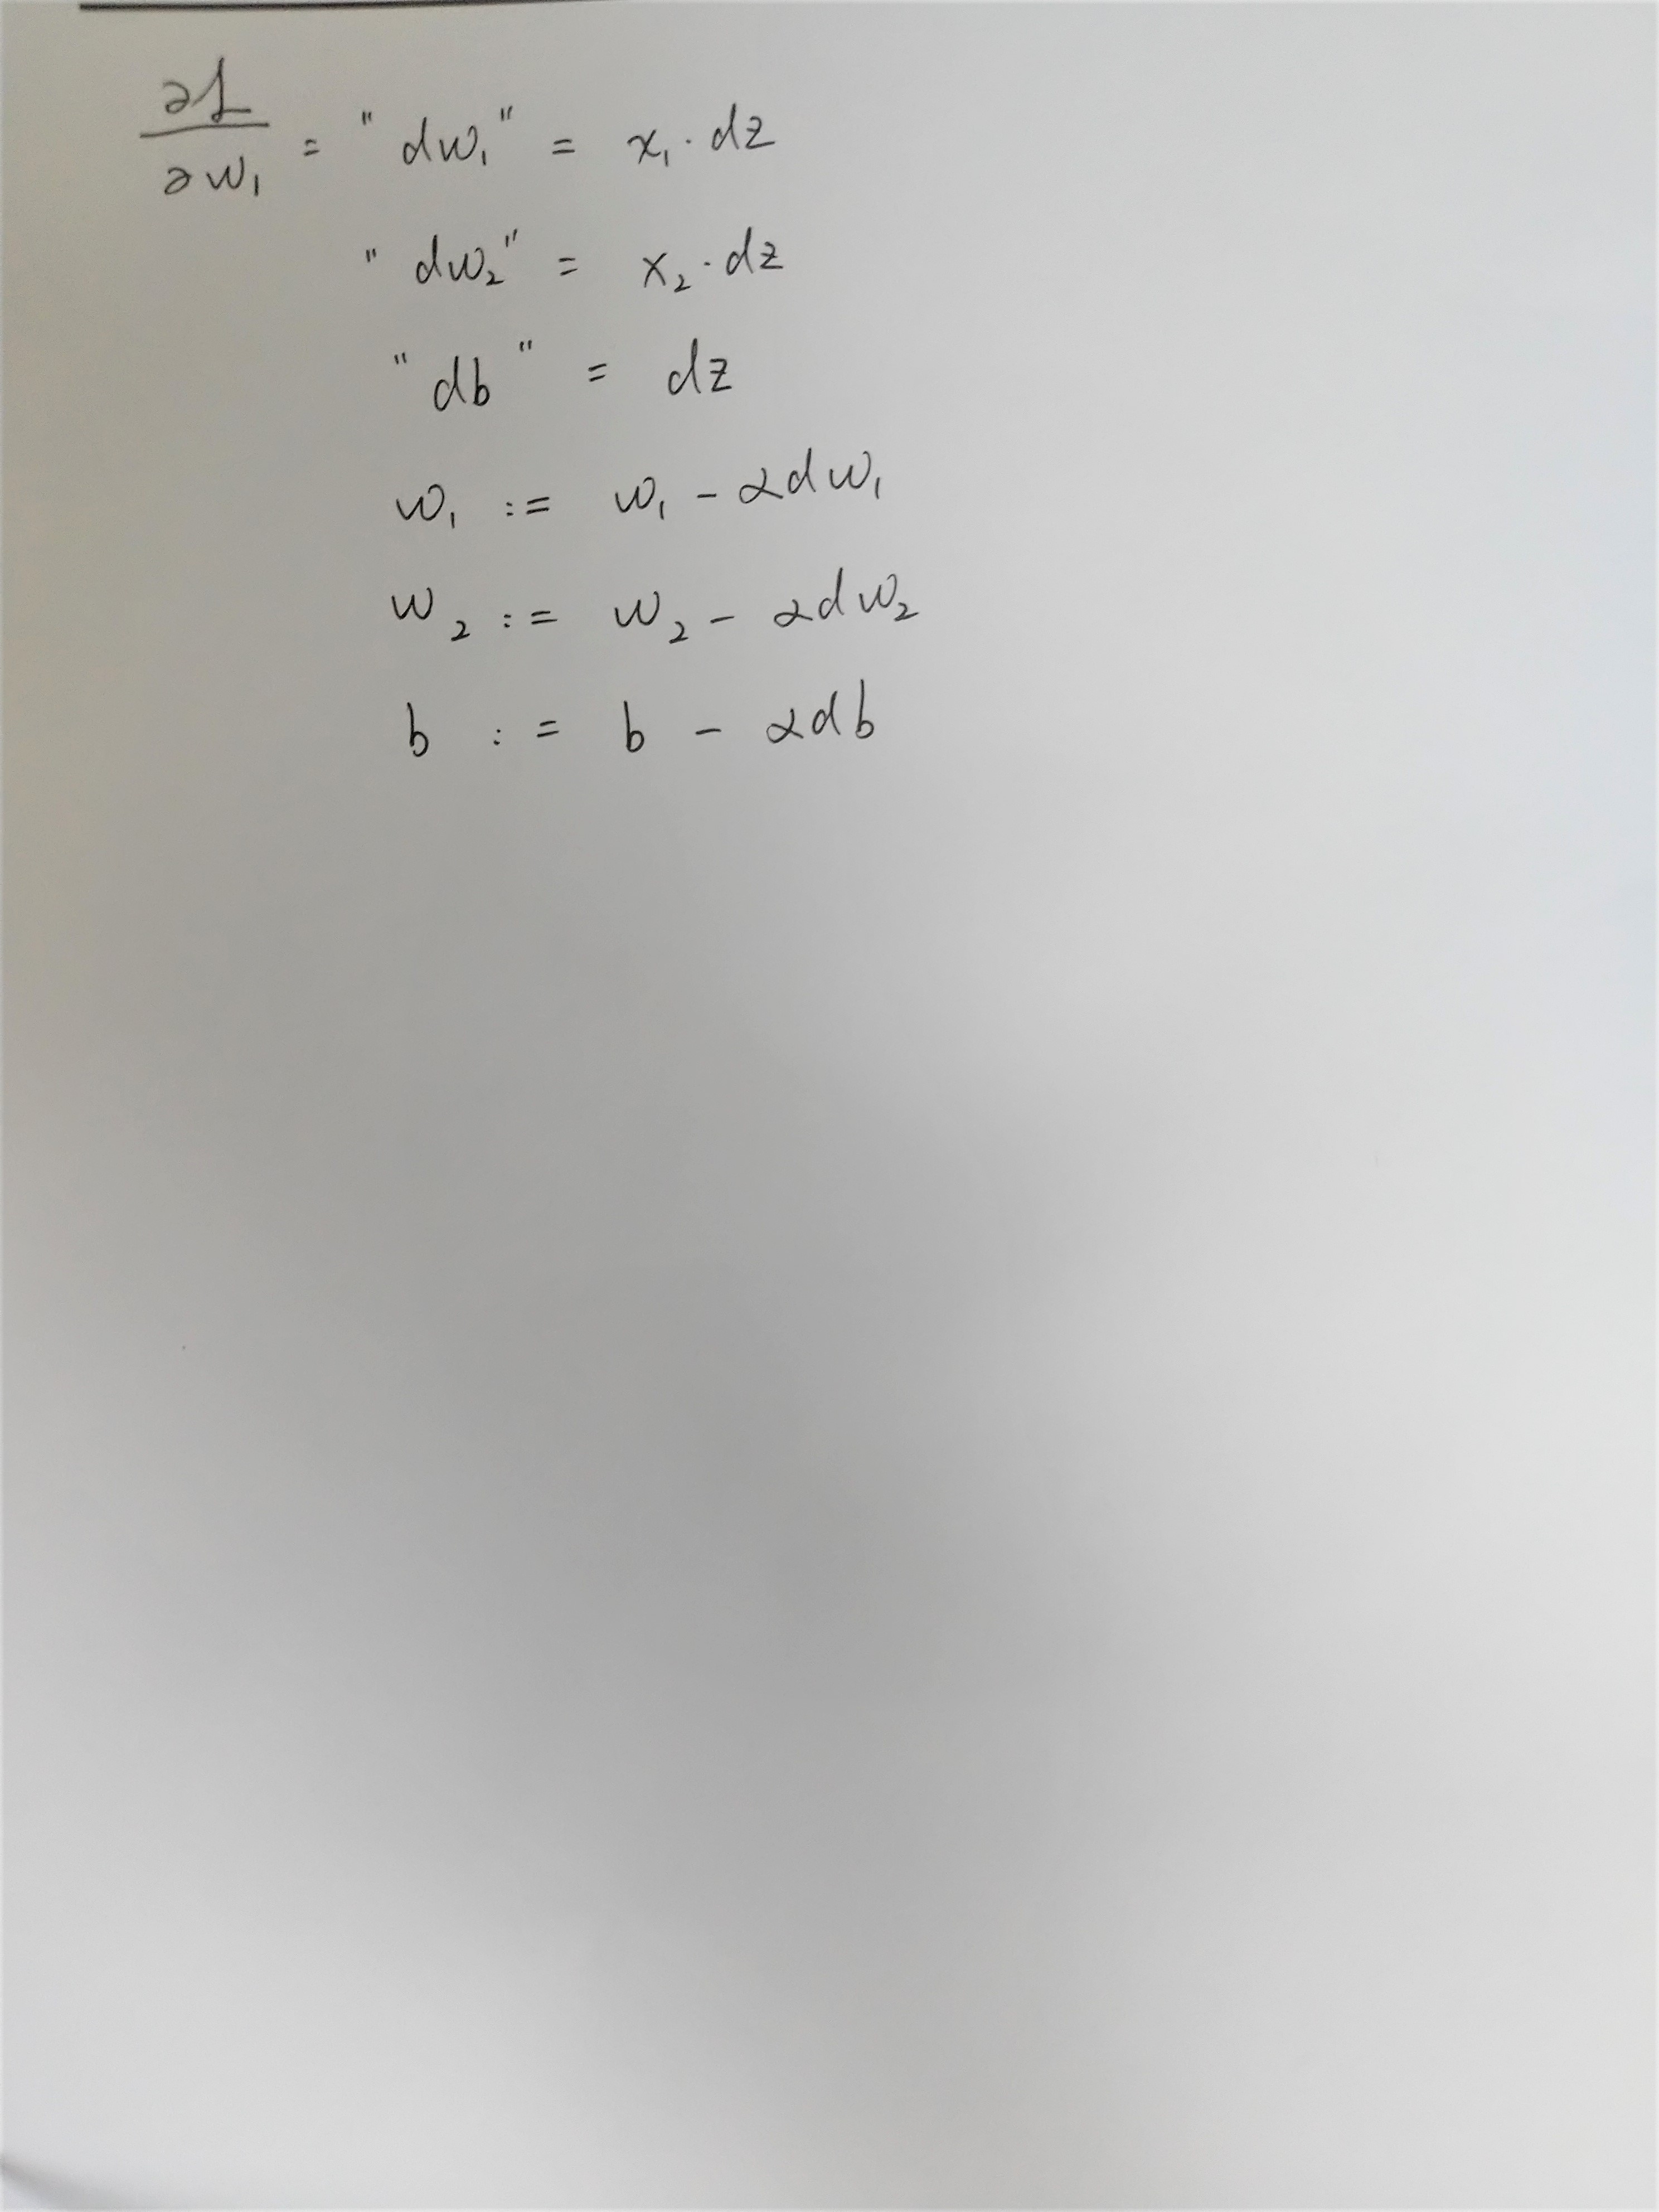 ∂L/∂w₁ = "dw₁" = x₁ · dz
"dw₂" = x₂ · dz
"db" = dz
w₁ := w₁ - αdw₁
w₂ := w₂ - αdw₂
b := b - αdb